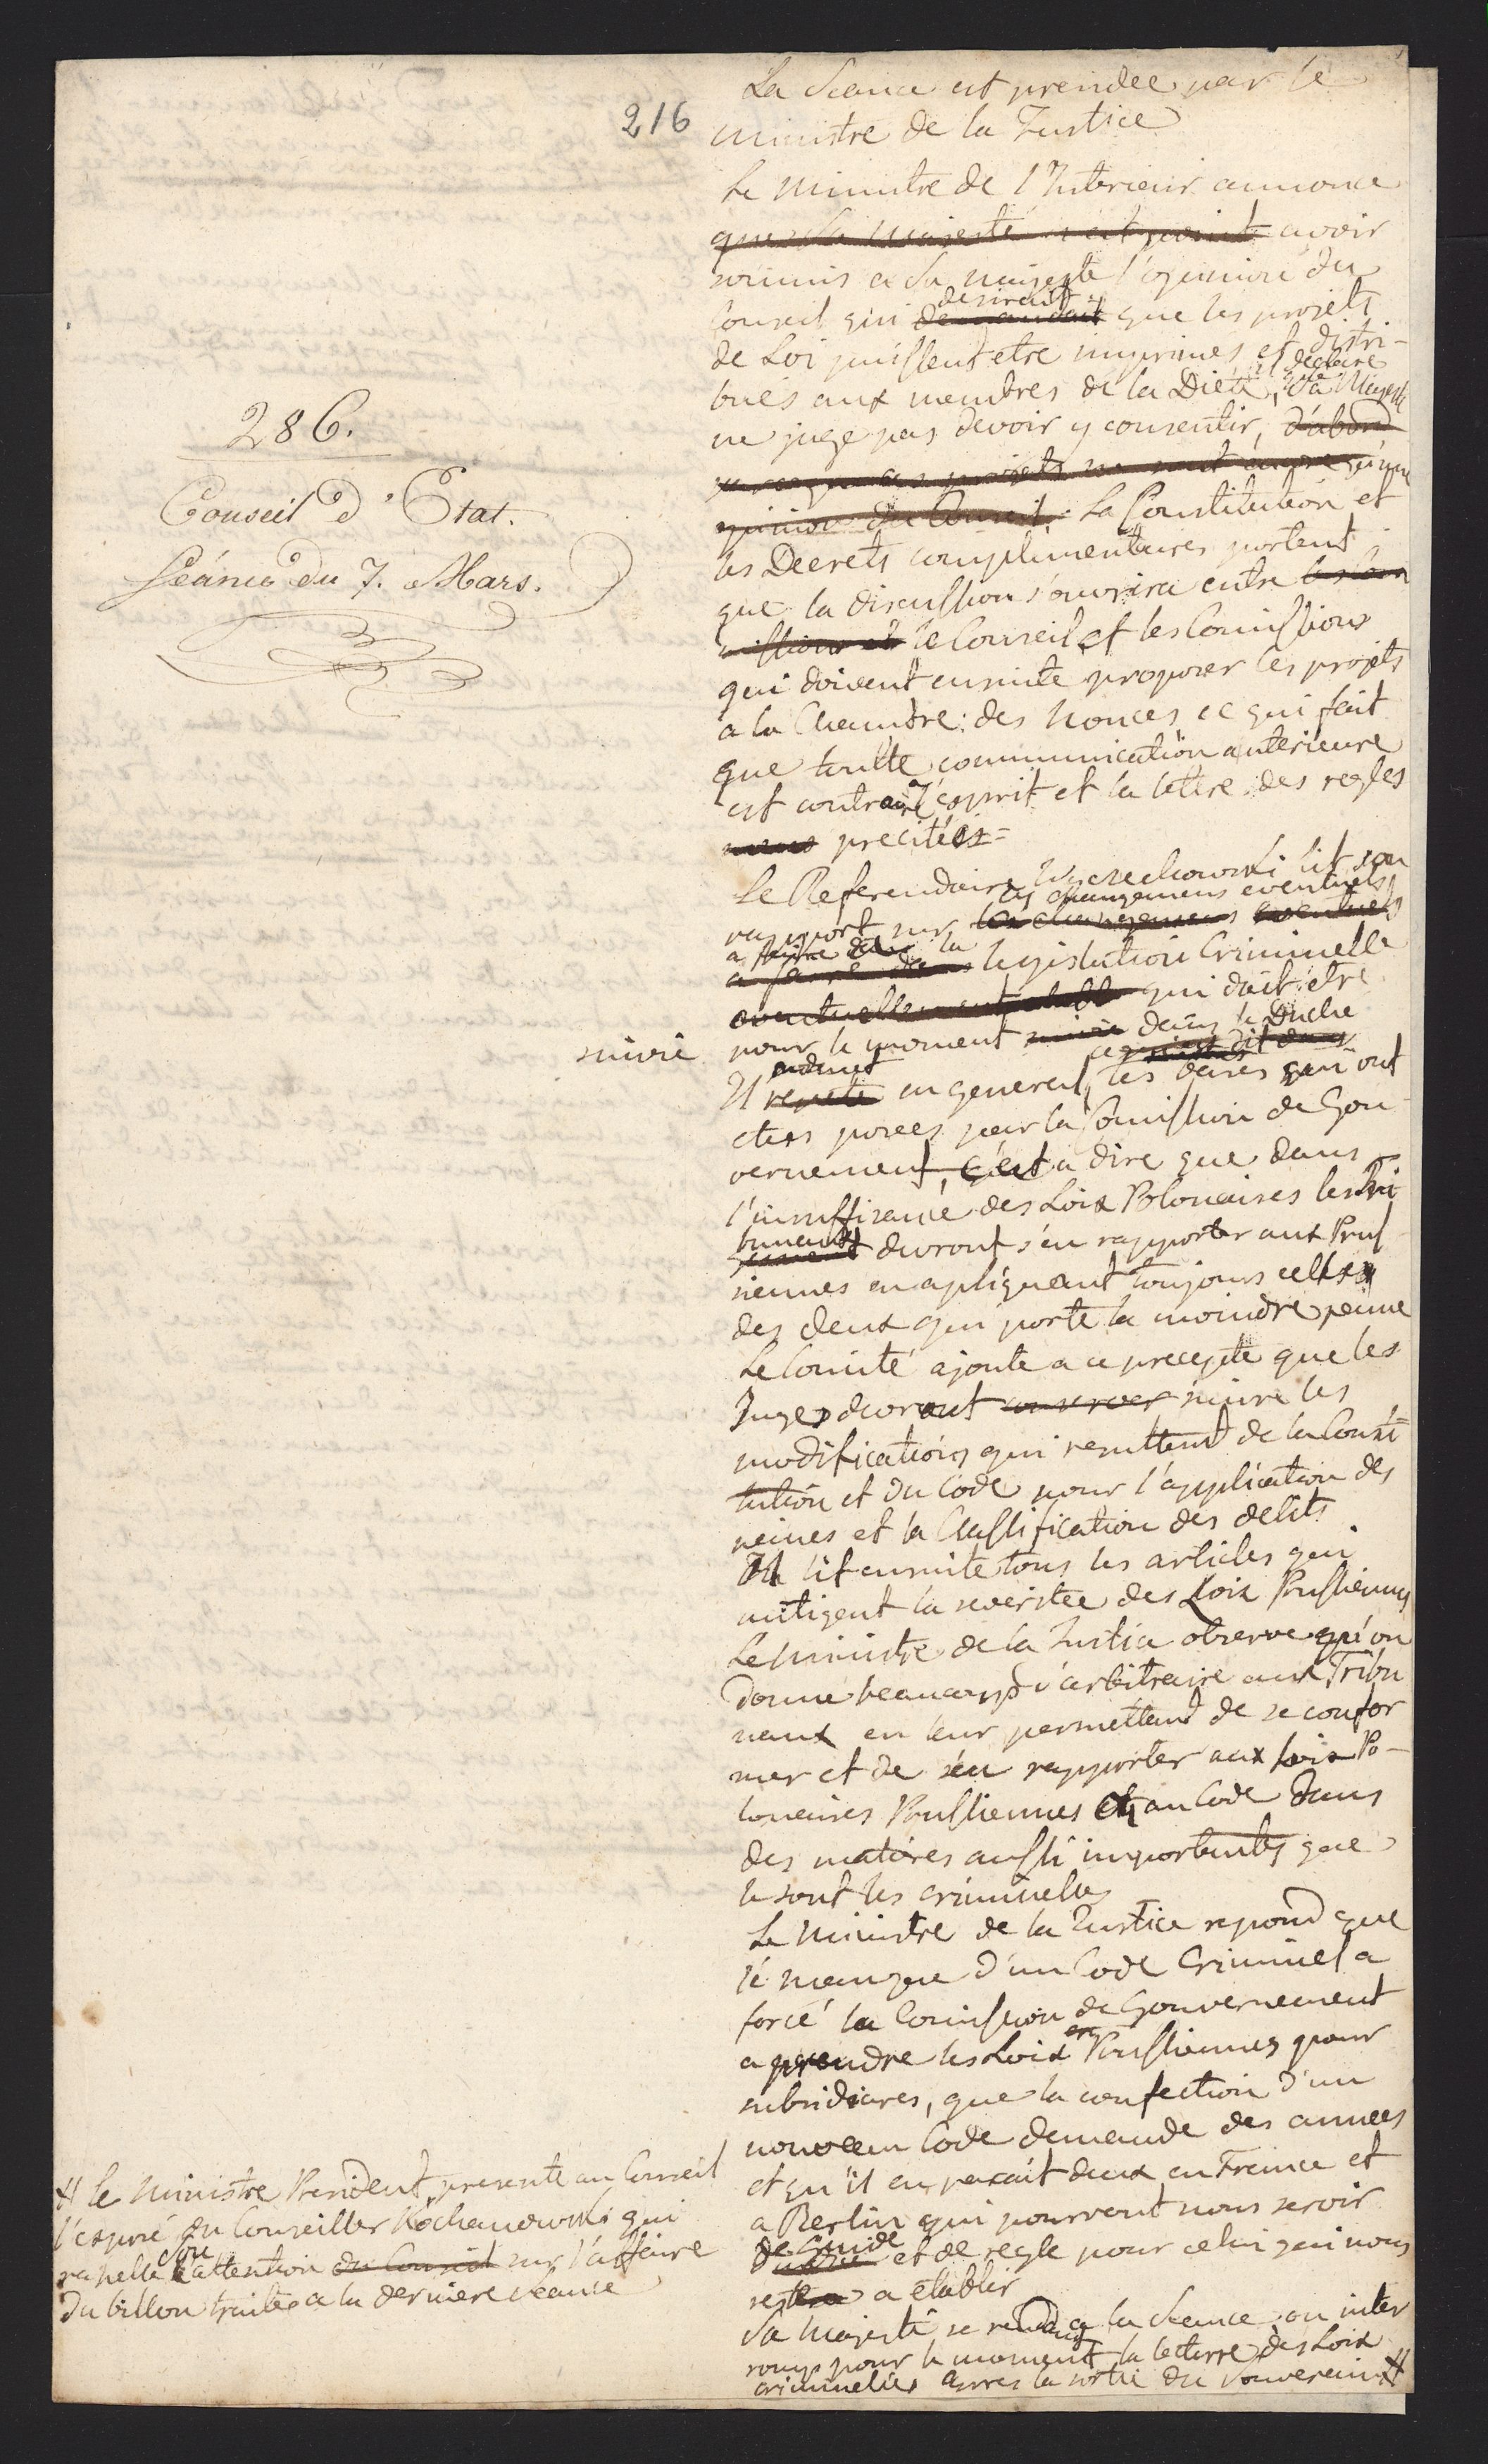 216
286.
Conseil d'Etat.
Séance du 7. Mars.
La Seance est presidee par le
Ministre de la Justice
Le Ministre de l'Interieur annonce
que Sa Majesté n'est point avoir
soumis a Sa Majeste l'opinion du
desirait
Conseil qui demandait que les projets
de Loi puissent etre imprimes et distri-
bués aux membres de la Diete, il declare que Sa Majesté
ne juge pas devoir y consentir, d'abord
parceque ces projets ne sont encore qu'une
opinion du Conseil. La Constitution et
les Decrets complimentaires portent
que la discussion s'ouvrira entre les Com
missions et le Conseil et les Comissions
qui doivent ensuite proposer les projets
a la Chambre des Nonces ce qui fait
que toutte communication anterieure
est contraire l'esprit et la lettre des regles
precitées=
Le Referendaire Wyczechowski lit son
les changemens eventuels
rapport sur les changemens eventuels
a faire dans la
a faire dans legislation Criminelle
eventuellement qui doit etre
suivie
pour le moment suivie dans le Duché
admet
Il repete en general, les bases qui ont
etes posees par la Comission de Gou
vernement, c'est a dire que dans
l'insuffisance des Loix Polonaises les Tri
bunaux devront s'en rapporter aux Prus
siennes en apliquant toujours celles
des deux qui porte la moindre peine
Le Comité ajoute a ce precepte que les
Juges devront conserver suivre les
modifications qui resultent de la Consti=
tution et du Code pour l'application des
peines et la Classification des delits
Il lit ensuite tous les articles qui
mitigent la severitee des Loix Prussiennes
Le Ministre de la Justice observe qu'on
donne beaucoup d'arbitraire aux Tribu
naux en leur permettant de se confor
mer et de s'en rapporter aux loix Po-
lonaises Prussiennes et au Code dans
des matieres aussi importantes que
le sont les criminelles
Le Ministre de la Justice repond que
le manque d'un Code Criminel a
forcé la Comission de Gouvernement
a prendre les Loix Prussiennes pour
subsidiares, que la confection d'un
nouveau Code demande des annees
et qu'il en parait deux en France et
a Berlin qui pourront nous servir
de Guide
et de regle pour celui qui nous
restera a etablir
Sa Majesté se rendant a la Seance on inter
romp pour le moment la lecture des Loix
criminelles apres la sortie du Souverain #
# le Ministre President presente au Conseil
l'exposé du Conseiller Kochanowski qui
rapelle son attention du Conseil sur l'affaire
du billon traitée a la derniere seance